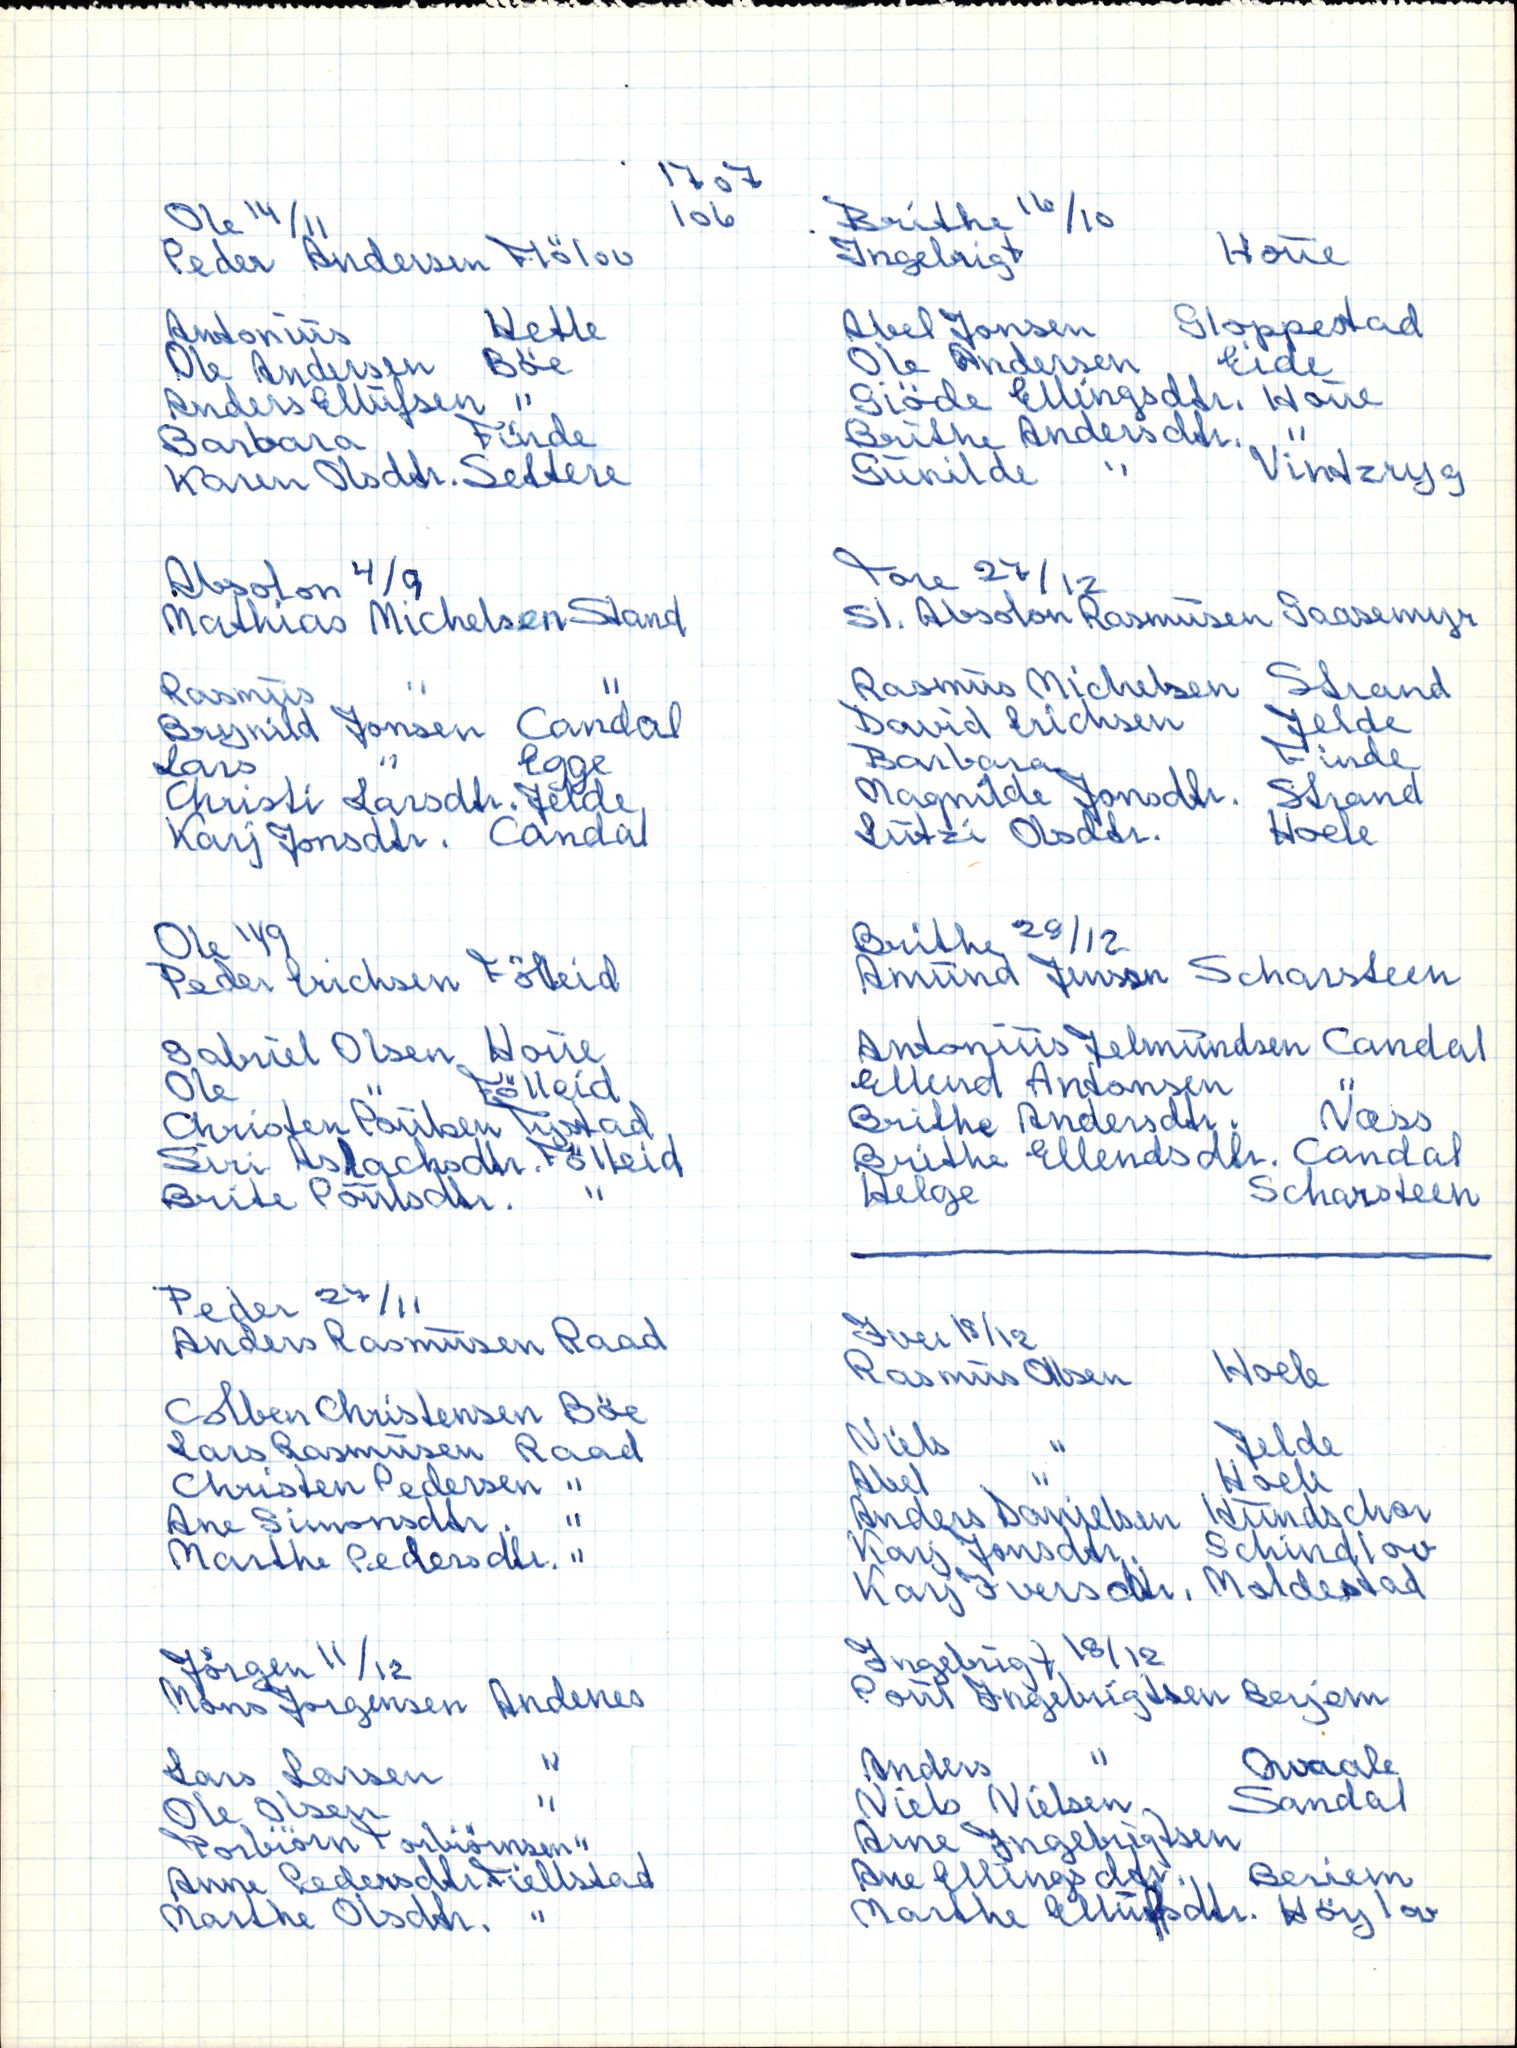 1707
106
Ole 14/11
Peder Andersen Flölov
Antoniüs Hetle
Ole Andersen Böe
Anders Ellüfsen "
Barbara Fürde
Karen Olsdtr. Settere
Absolon 4/9
Mathias Michelsen Stand
Rasmüs " "
Brynild Jonsen Candal
Lars " Egge
Christi Larsdtr. Jelde
Karj Jonsdtr. Candal
Ole 1/9
Peder Erichsen Fölleid
Gabriel Olsen Hoüe
Ole " Fölleid
Christen Poülsen Tystad
Siri Aslachsdtr. Fölleid
Brite Poülsdtr. "
Peder 27/11
Anders Rasmüsen Raad
Colben Christensen Böe
Lars Rasmüsen Raad
Christen Pedersen "
Ane Simonsdtr. "
Marthe Pedersdtr. "
Jörgen 11/12
Mons Jorgensen Andenes
Lars Larsen "
Ole Olsen "
Torbiörn Torbiörnsen "
Anne Pedersdtr. Fiellstad
Marthe Olsdtr. "
Brithe 16/10
Ingebrigt Hoüe
Abel Jonsen Gloppestad
Ole Andersen Eide
Giöde Ellingsdtr. Hoüe
Brithe Andersdtr. "
Günilde " Vintzryg
Tore 27/12
Sl. Absolon Rasmüsen Gaasemyr
Rasmüs Michelsen Strand
David Erichsen Jelde
Barbara Finde
Magnilde Jonsdtr. Strand
Lützi Olsdtr. Hoele
Brithe 28/12
Amünd Jensen Scharsteen
Antoniüs Jelmündsen Candal
Ellend Antonsen "
Brithe Andersdtr. Næss
Brithe Ellendsdtr. Candal
Helge Scharsteen
Iver 18/12
Rasmüs Olsen Hoele
Niels " Jelde
Abel " Hoele
Anders Danjelsen Hündschor
Karj Jonsdtr. Schindlov
Karj Iversdtr. Moldestad
Ingebrigt 18/12
Poül Ingebrigtsen Berjem
Anders " Qvaale
Niels Nielsen Sandal
Arne Ingebrigtsen
Ane Ellingsdtr. Beriem
Marthe Ellüfsdtr. Höylov